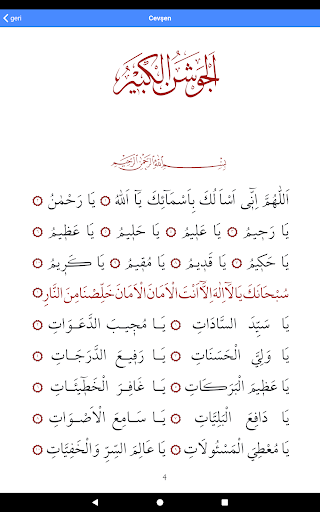 geri
Cevşen
اَلْجَوْشَنُ الْكَبِيرُ
بِسْمِ اللّٰهِ الرَّحْمٰنِ الرَّحِيمِ
اَللّٰهُمَّ اِنِّٓي اَسْاَلُكَ بِاَسْمَائِكَ يَٓا اَللّٰهُ ۞ يَا رَحْمٰنُ ۞
يَا رَحِيمُ ۞ يَا عَلِيمُ ۞ يَا حَلِيمُ ۞ يَا عَظِيمُ ۞
يَا حَكِيمُ ۞ يَا قَدِيمُ ۞ يَا مُقِيمُ ۞ يَا كَرِيمُ ۞
سُبْحَانَكَ يَا لَٓا اِلٰهَ اِلَّٓا اَنْتَ الْاَمَانَ الْاَمَانَ خَلِّصْنَا مِنَ النَّارِ
يَا سَيِّدَ السَّادَاتِ ۞ يَا مُجِيبَ الدَّعَوَاتِ ۞
يَا وَلِيَّ الْحَسَنَاتِ ۞ يَا رَفِيعَ الدَّرَجَاتِ ۞
يَا عَظِيمَ الْبَرَكَاتِ ۞ يَا غَافِرَ الْخَطِٓيئَاتِ ۞
يَا دَافِعَ الْبَلِيَّاتِ ۞ يَا سَامِعَ الْاَصْوَاتِ ۞
يَا مُعْطِيَ الْمَسْئُولَاتِ ۞ يَا عَالِمَ السِّرِّ وَالْخَفِيَّاتِ ۞
4